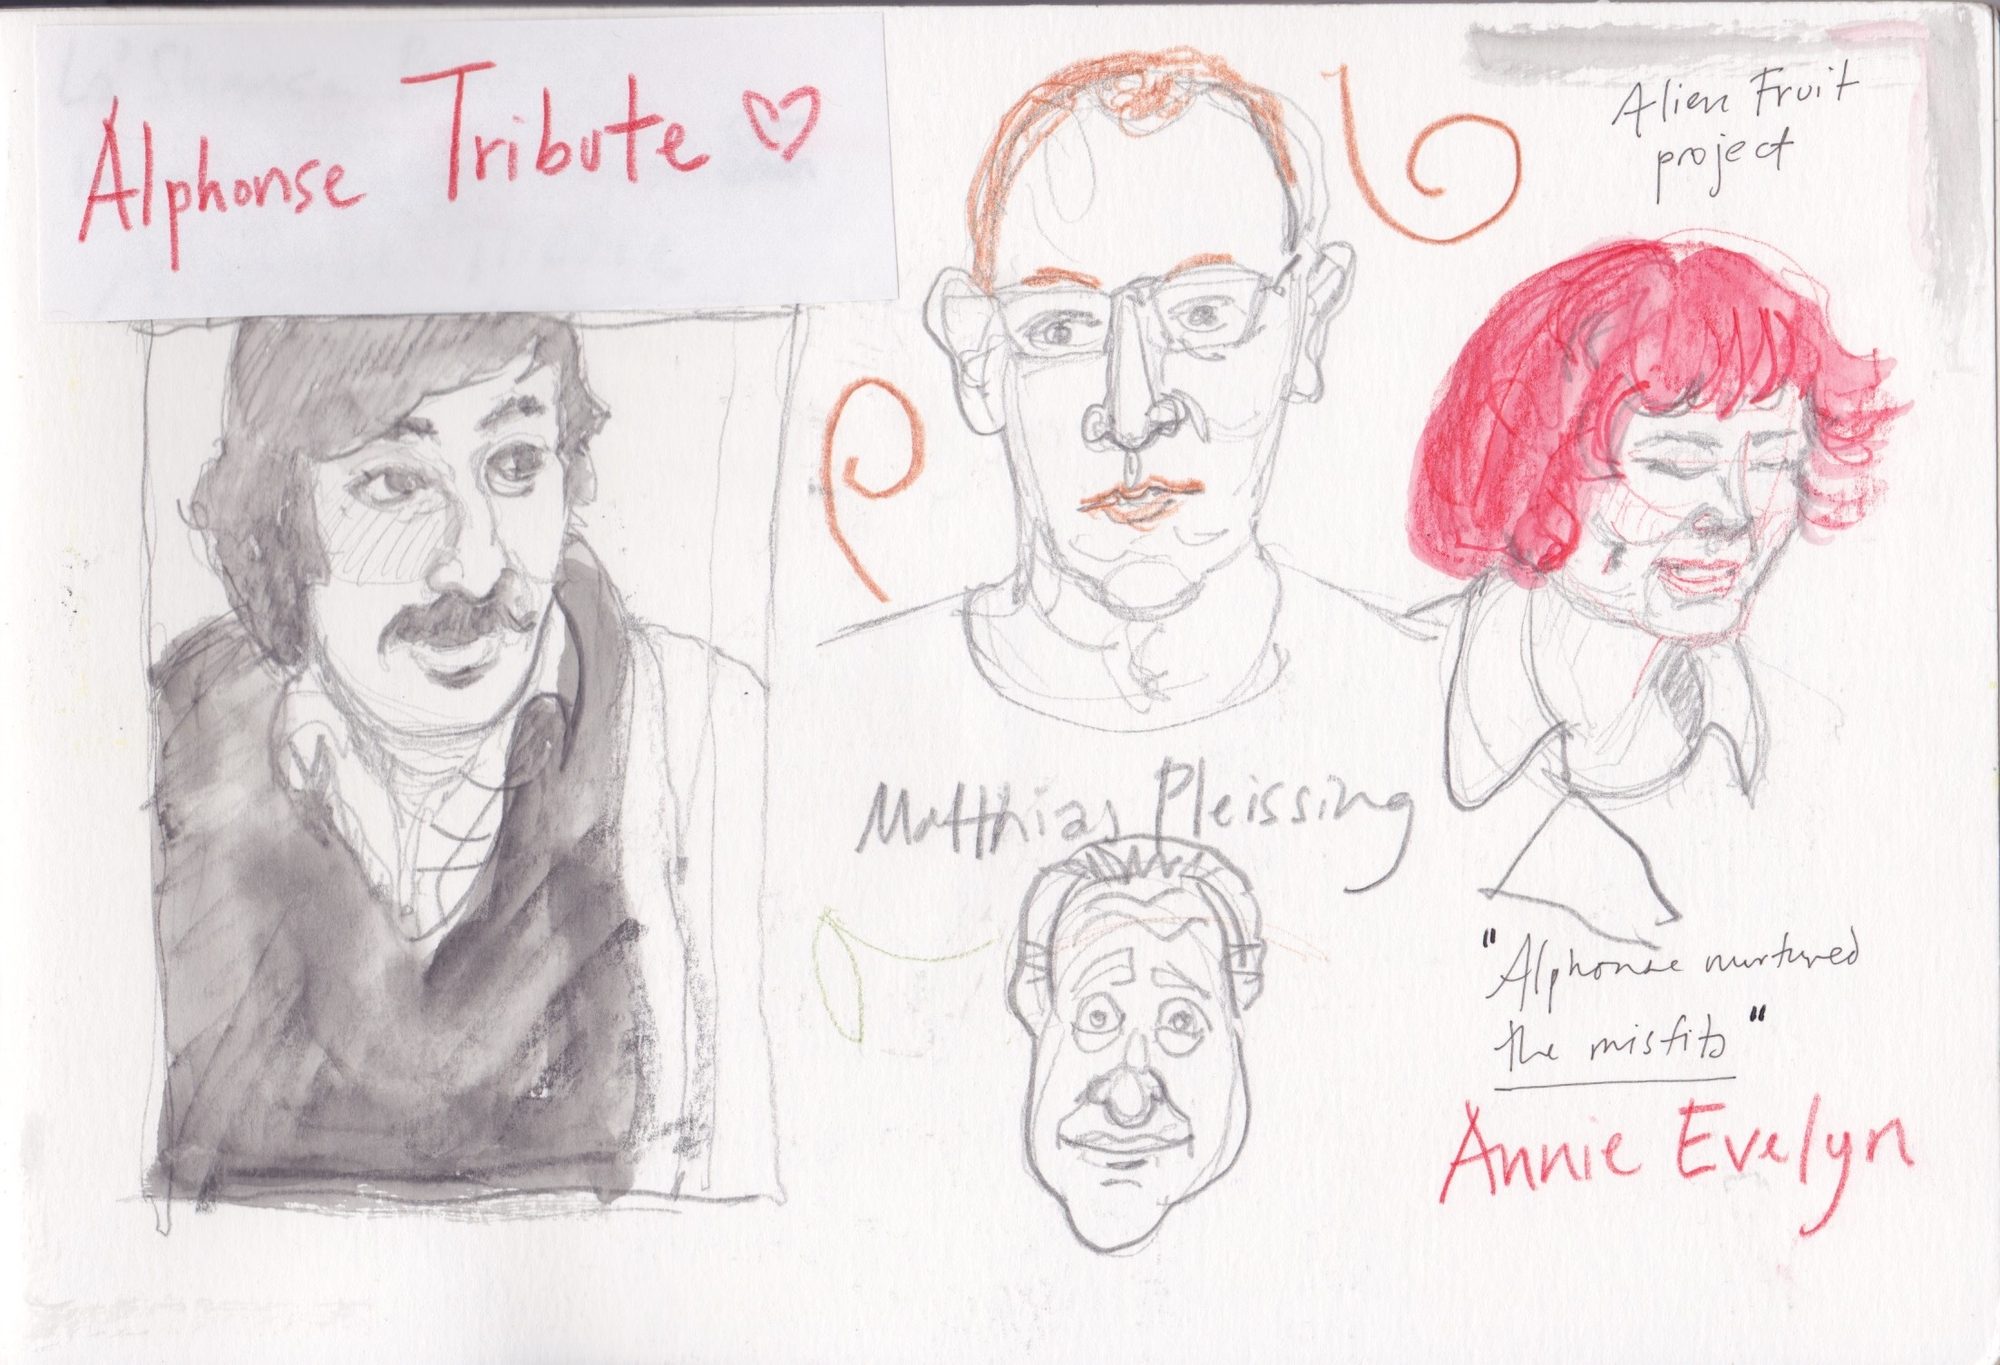 Alphonse Tribute ♡
Alien Fruit
project
Matthias Pleissing
"Alphonse nurtured
the misfits"
Annie Evelyn